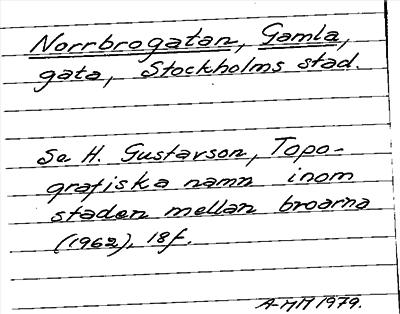 Norrbrogatan, Gamla,
gata, Stockholms stad.
Se H. Gustavson, Topo-
grafiska namn inom
staden mellan broarna
(1962), 18f.
AMM 1979.